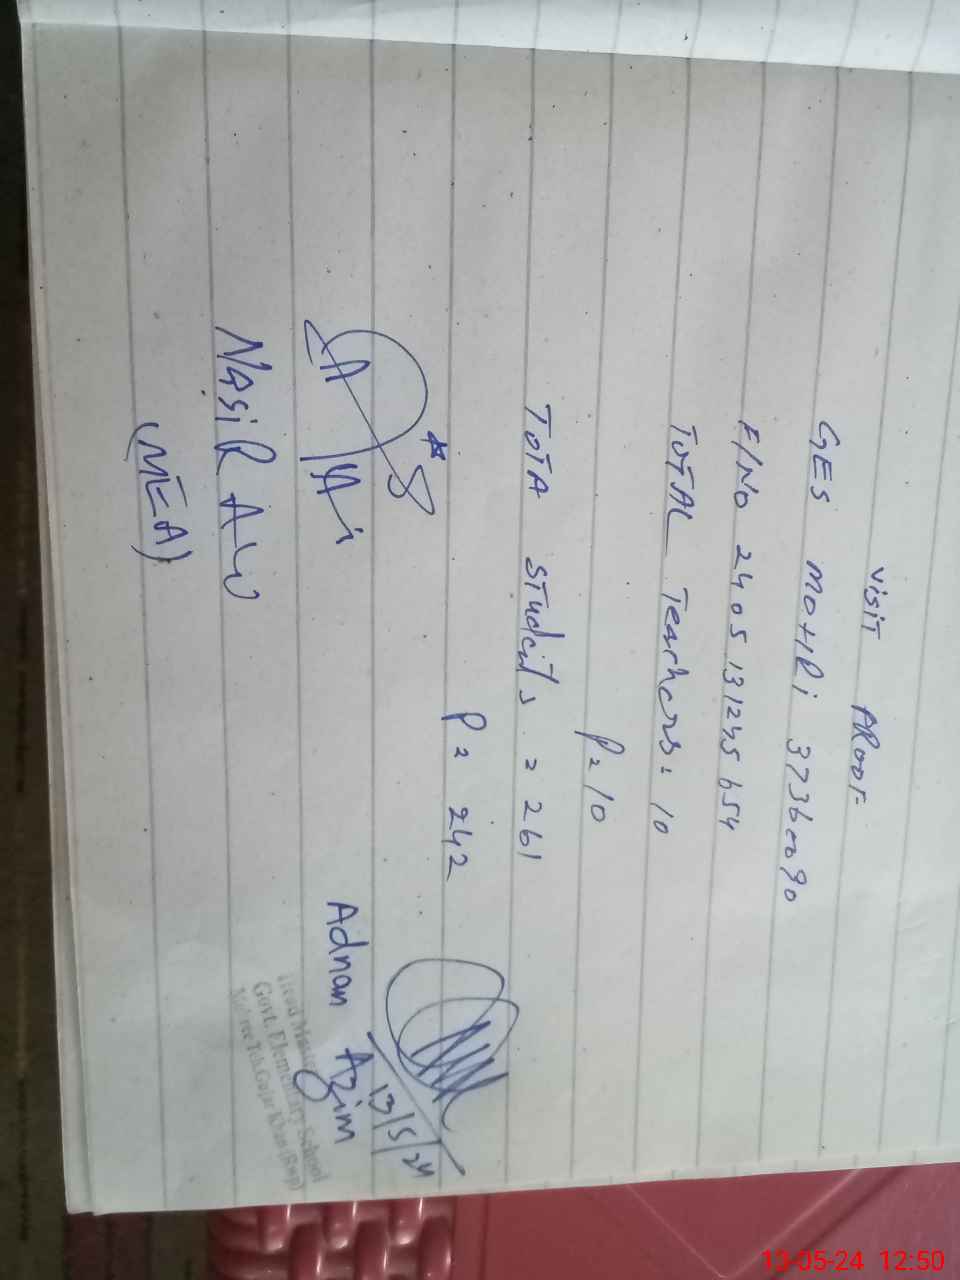 Visit PRoof
GES MOHRi 37360090
F/No 2405 131245 654
ToTAL Teachers = 10
P = 10
ToTA Students = 261
P = 242
13/5/24
Adnan Azim
Head Master
Govt. Elementary School
Teh. Gujar Khan (Rwp)
NasiR Ali
(MEA)
13-05-24 12:50